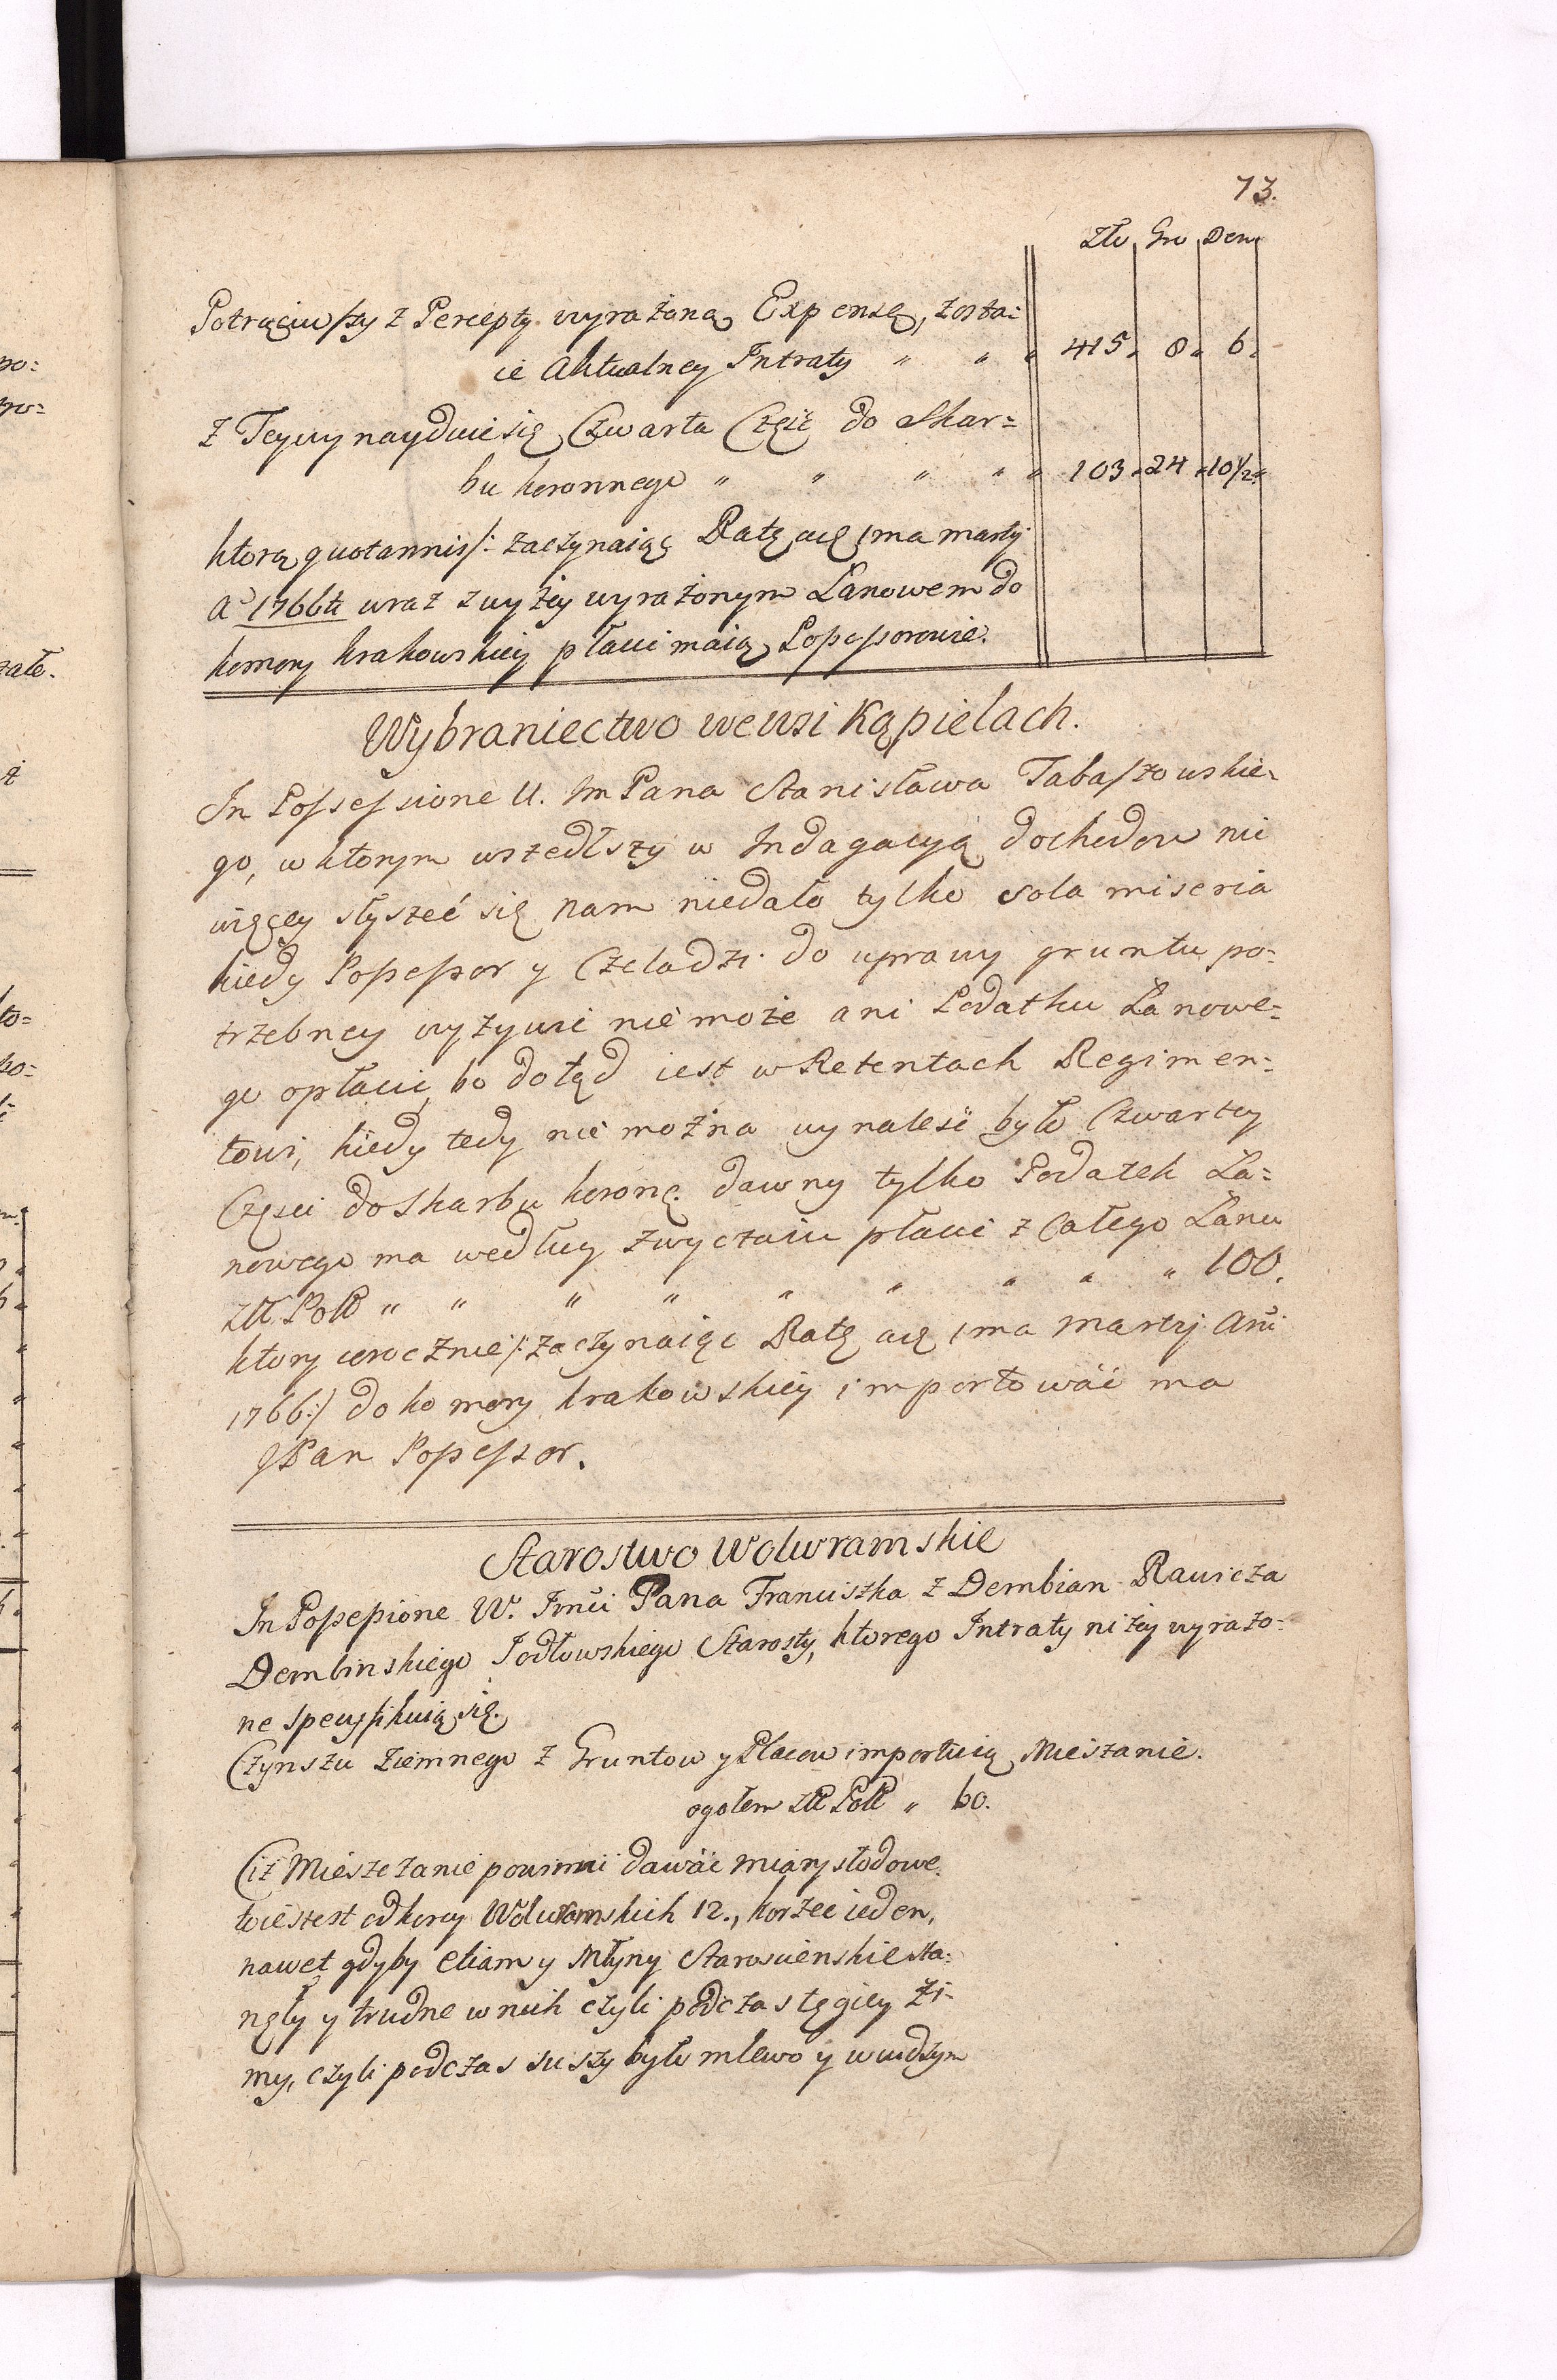 73.
Złł Gro Den
Potrąciwszy z Percepty wyrażoną Expensę, zosta=
ie Aktualney Intraty " " " 415 " 8 " 6 "
z Tey wynayduie się Czwarta Część do Skar=
bu koronnego " " " " " 103 " 24 " 10 1/2 "
ktorą quotannis /: zaczynaiąc Ratę a 1ma martij
A° 1766ti wraz z wyżey wyrażonym Łanowem do
komory krakowskiey płacić maią Possessorowie.
Wybraniectwo we wsi Kąpielach.
In Possessione U. Jm Pana Stanisława Tabaszowskie=
go, w ktorym wszedłszy w Indagacyą dochodow nic
więcey słyszeć się nam niedało tylko sola miseria
kiedy Possessor y Czeladzi do uprawy gruntu po=
trzebney wyżywić nie może ani Podatku Łanowe=
go opłacić, bo dotąd iest w Retentach Regimen=
towi, kiedy tedy nie można wynaleść było Czwartey
Części do Skarbu koronę. dawny tylko Podatek Ła=
nowego ma według zwyczaiu płacić z całego Łanu
złł Poll " " " " " " " " " 100.
ktory corocznie /: zaczynaiąc Ratę a 1ma Martij Añi
1766 :/ do komory krakowskiey importować ma
JPan Possessor.
Starostwo Wolwramskie
In Possessione W. Jmći Pana Franciszka z Dembian Rawicza
Dembinskiego Jodłowskiego Starosty, ktorego Intraty niżey wyrażo=
ne specyfikuią się.
Czynszu ziemnego z Gruntow y Placow importuią Mieszanie.
ogołem złł Poll " 60.
Ciż Mieszczanie powinni dawać miary słodowe
to iest od korcy Wolwramskich 12., korzec ieden,
nawet gdyby etiam y Młyny Starościenskie sta=
nęły y trudne w nich czyli podczas tęgiey Zi=
my, czyli podczas suszy było mlewo y w cudzym